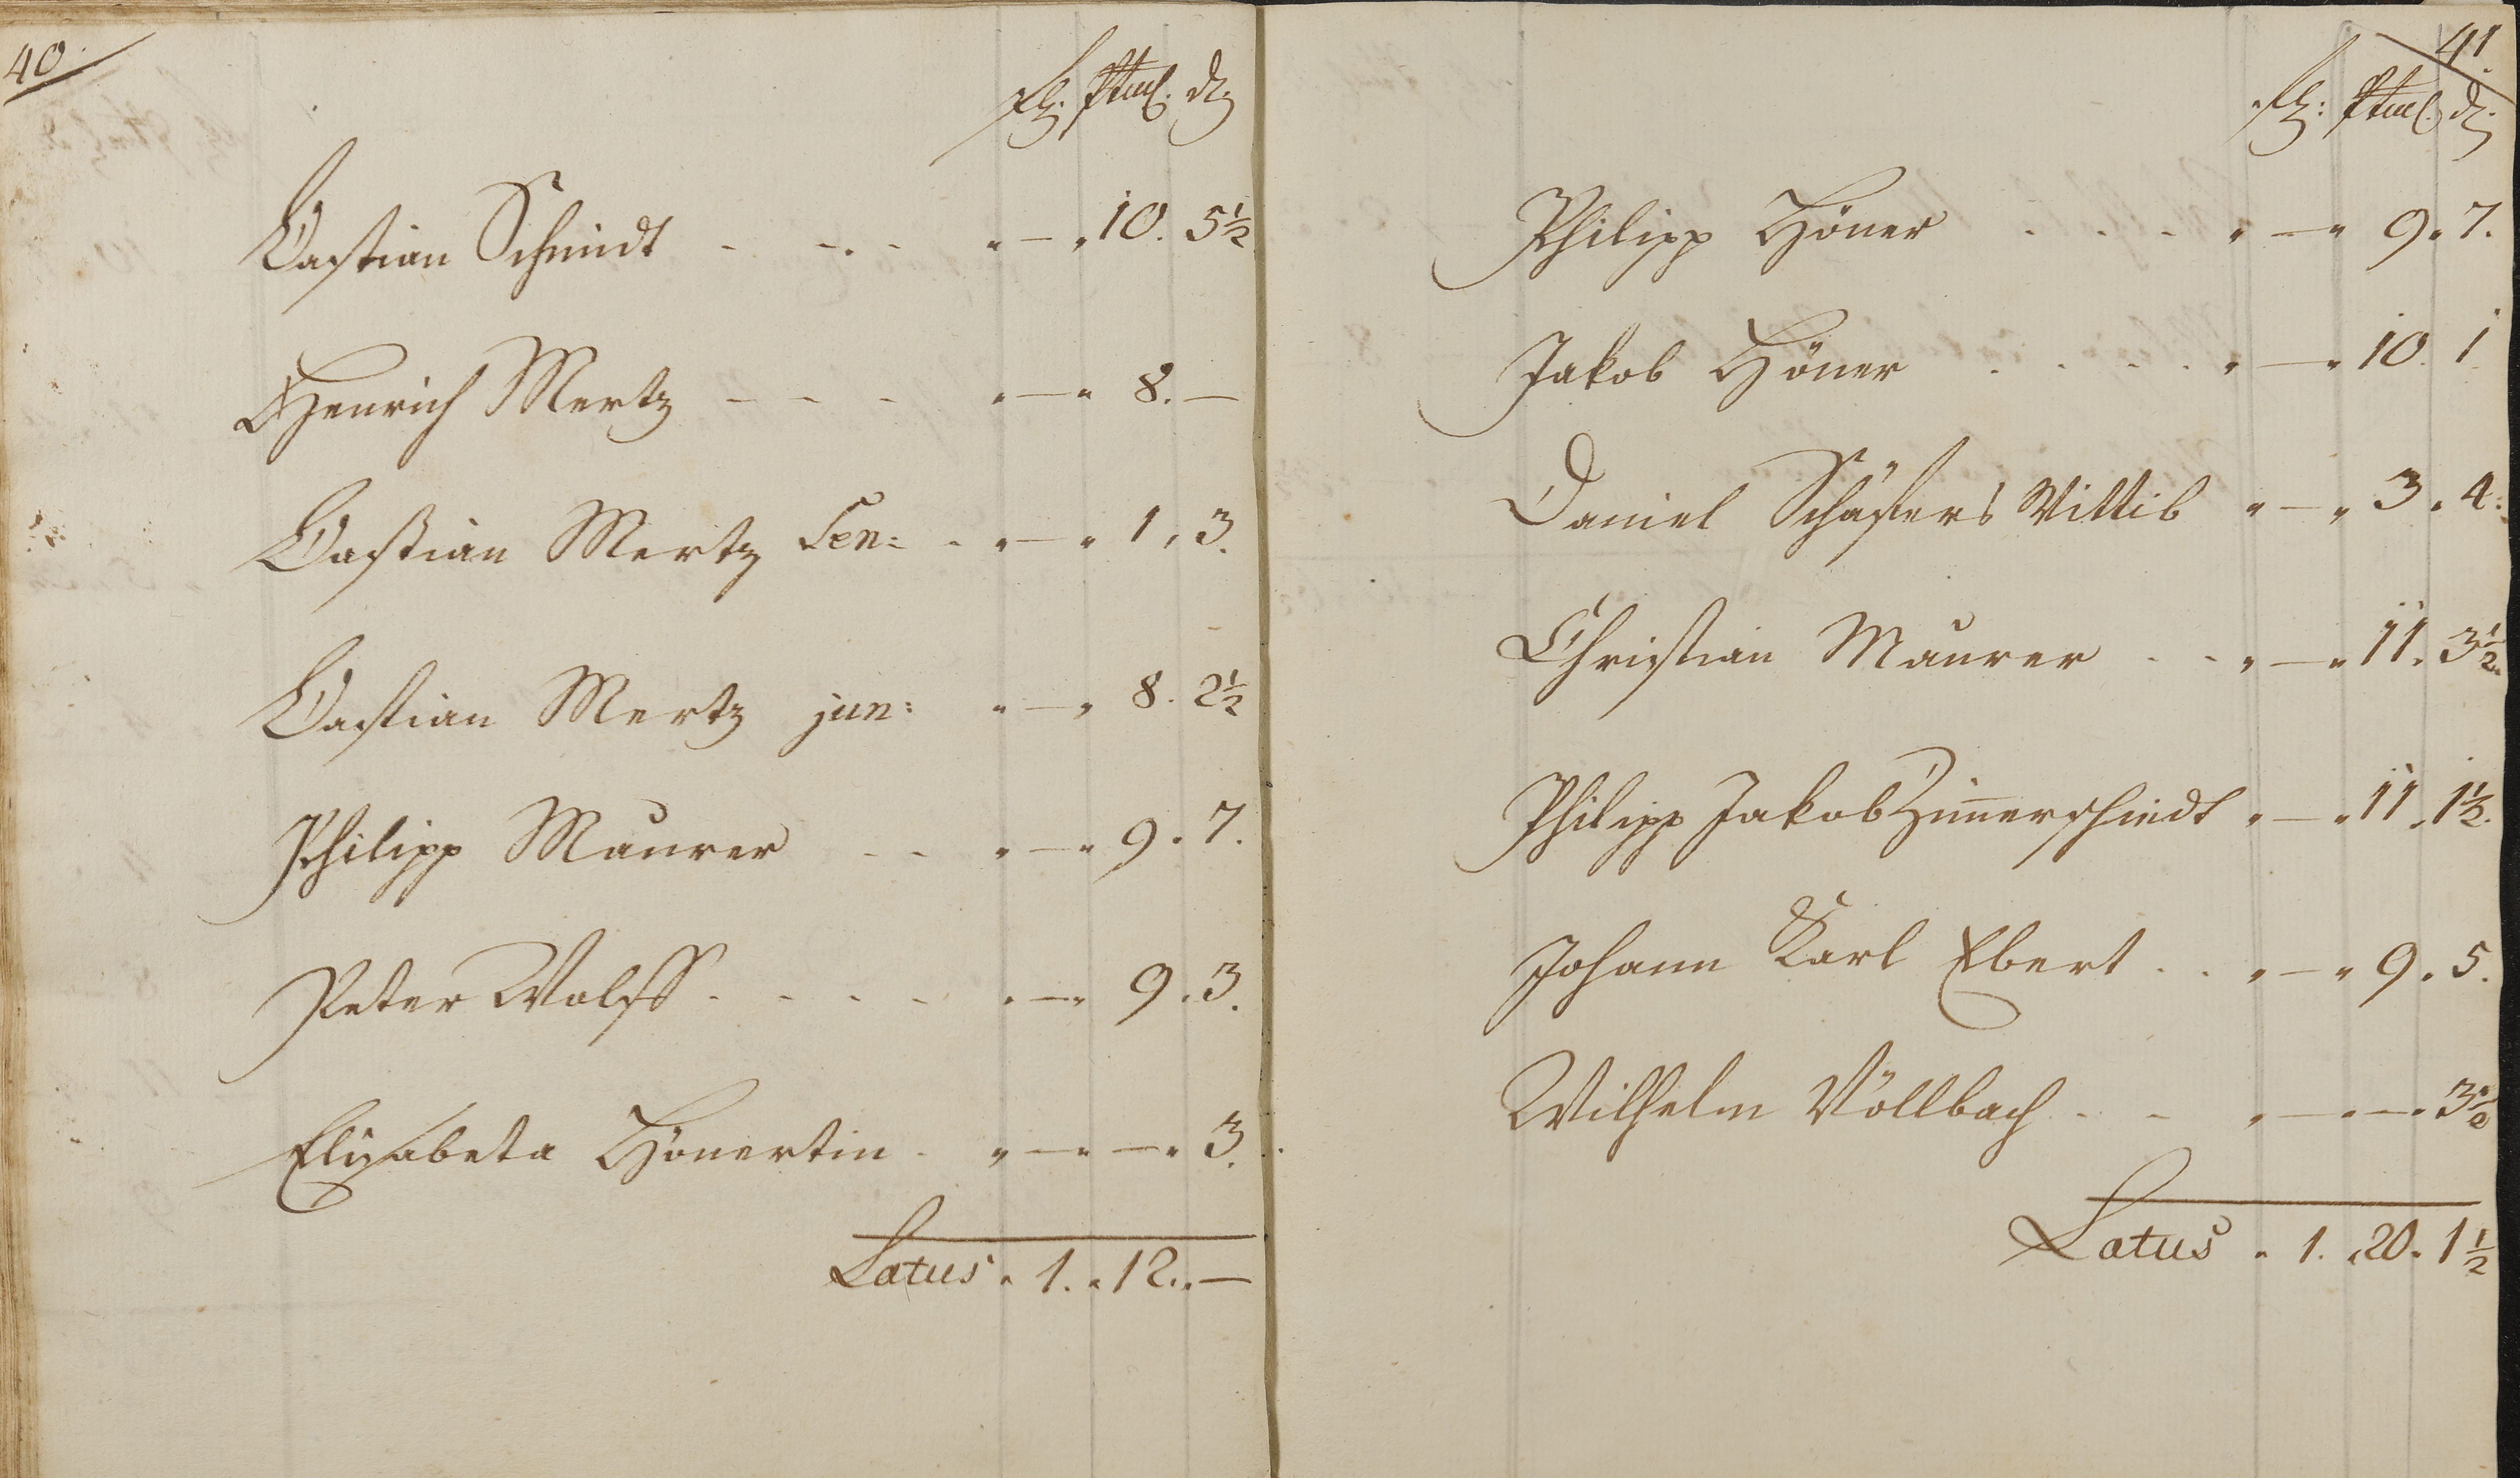 40.
fl. Stud. d.
Bastian Schmidt - - - " — " 10. 5½
Henrich Mertz - - - " — " 8. —
Bastian Mertz Sen: - " — " 1. 3.
Bastian Mertz jun: " — " 8. 2½
Philipp Maurer - - " — " 9. 7.
Peter Wolff - - - - " — " 9. 3.
Elisabeta Hönertin - " — " — " 3.
Latus " 1. " 12. " —
41.
Philipp Höner - - - " — " 9. 7.
Jakob Höner - - - - " — " 10. 1
Daniel Schäfers Wittib " — " 3. 4.
Christian Maurer - - " — " 11. 3½
Philipp Jakob Zim̄erschiedt " — " 11. 1½.
Johann Karl Ebert - - " — " 9. 5.
Wilhelm Völlbach - - " — " — " 3½
Latus " 1. " 20. 1½